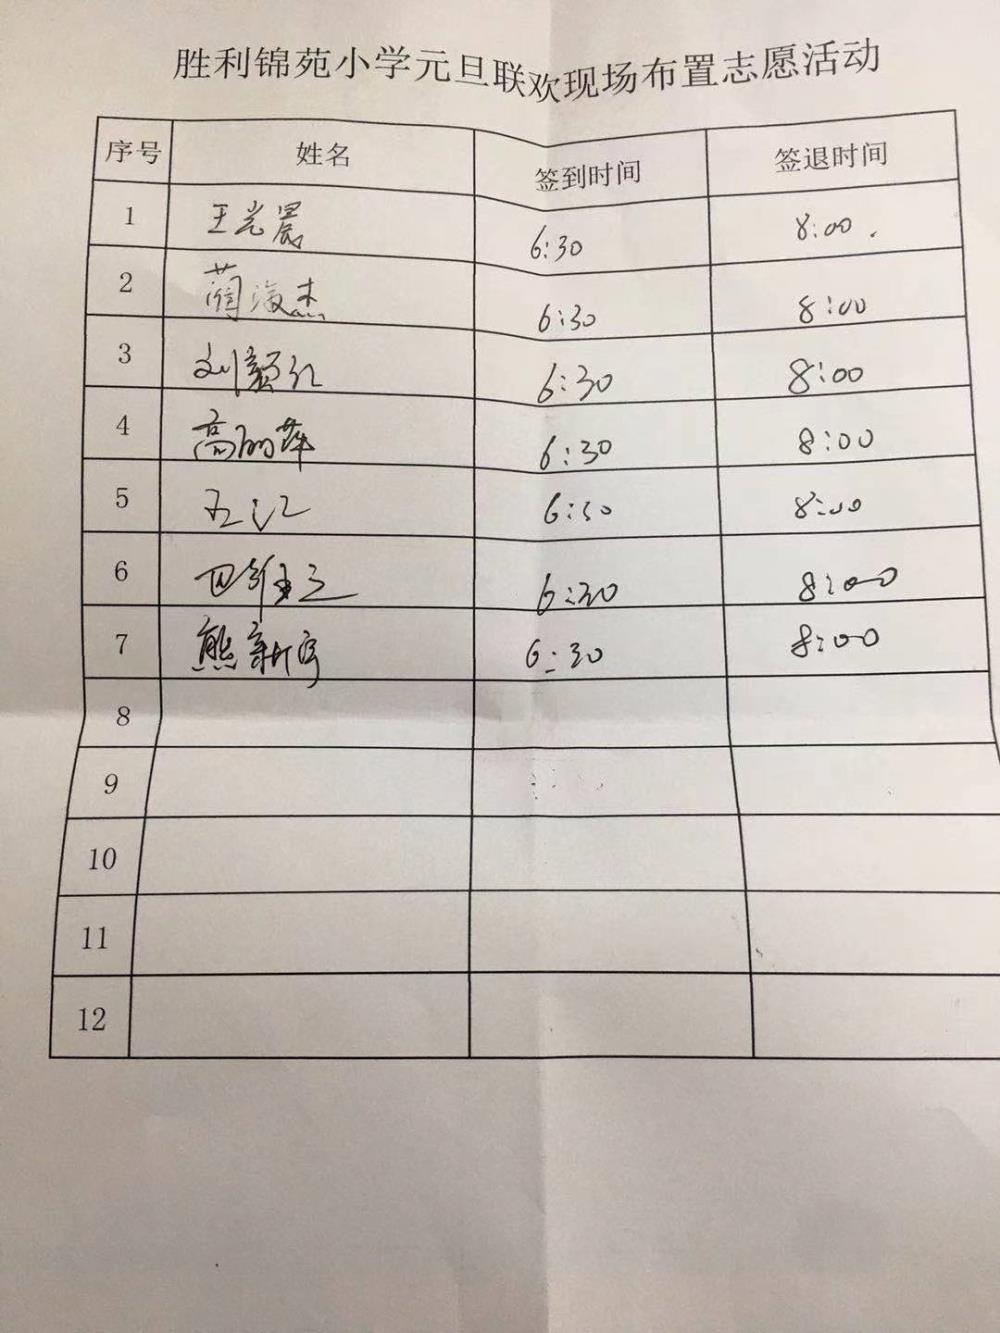 胜利锦苑小学元旦联欢现场布置志愿活动
序号 姓名 签到时间 签退时间
1 王光晨 6:30 8:00.
2 蔺海杰 6:30 8:00
3 刘颖红 6:30 8:00
4 高丽萍 6:30 8:00
5 6:30 8:00
6 6:30 8:00
7 熊新宇 6:30 8:00
8
9
10
11
12